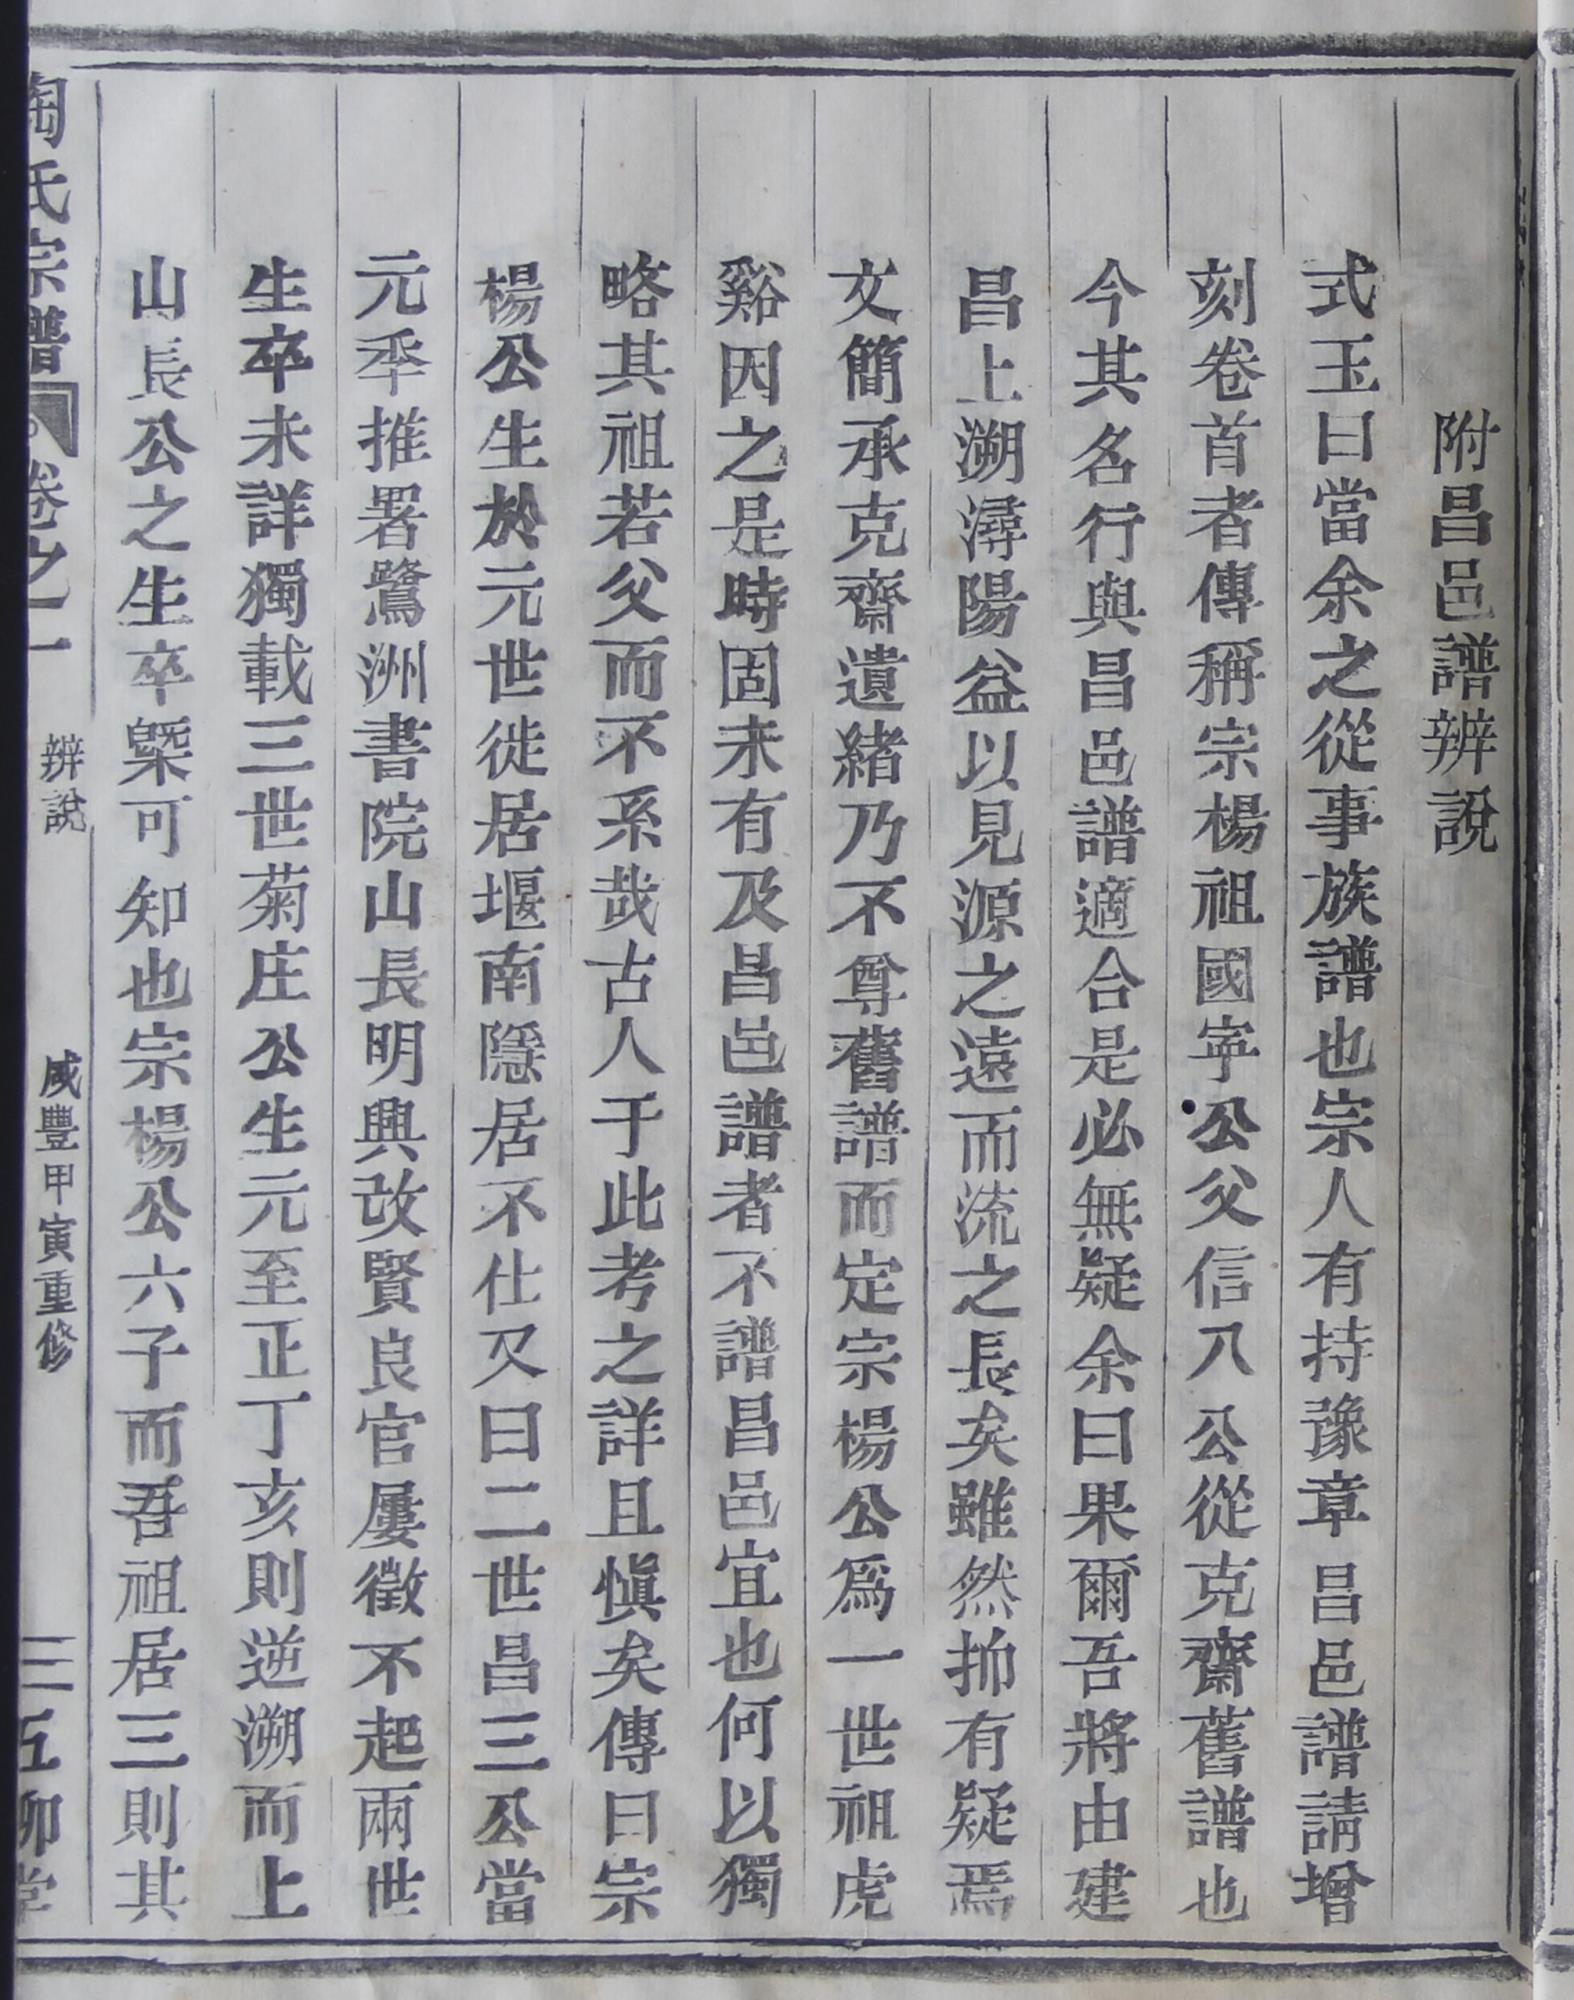 附昌邑譜辨說
式玉曰當余之從事族譜也宗人有持豫章昌邑譜請增
刻卷首者傳稱宗楊祖國寜公父信八公從克齋舊譜也
今其名行與昌邑譜適合是必無疑余曰果爾吾將由建
昌上溯潯陽益以見源之遠而流之長矣雖然抑有疑焉
文簡承克齋遺緒乃不尊舊譜而定宗楊公爲一世祖虎
谿因之是時固未有及昌邑譜者不譜昌邑宜也何以獨
略其祖若父而不系哉古人于此考之詳且愼矣傳曰宗
楊公生於元世徙居堰南隱居不仕又曰二世昌三公當
元季推署鷺洲書院山長明興改賢良官屢徵不起兩世
生卒未詳獨載三世菊庄公生元至正丁亥則逆溯而上
山長公之生卒槩可知也宗楊公六子而吾祖居三則其
陶氏宗譜 卷之一 辨說 咸豐甲寅重修 三 五柳堂